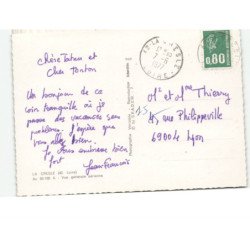 Chère Tatan et
Cher Tonton
Un bonjour de ce
coin tranquille où je
passe des vacances sans
problème. J'espère que
vous allez bien.
Je vous embrasse bien
fort
Jean François
LA CHEULE
Vue générale aérienne
0.80
Mr et Mme Thierry
45 rue Philippeville
69004 Lyon